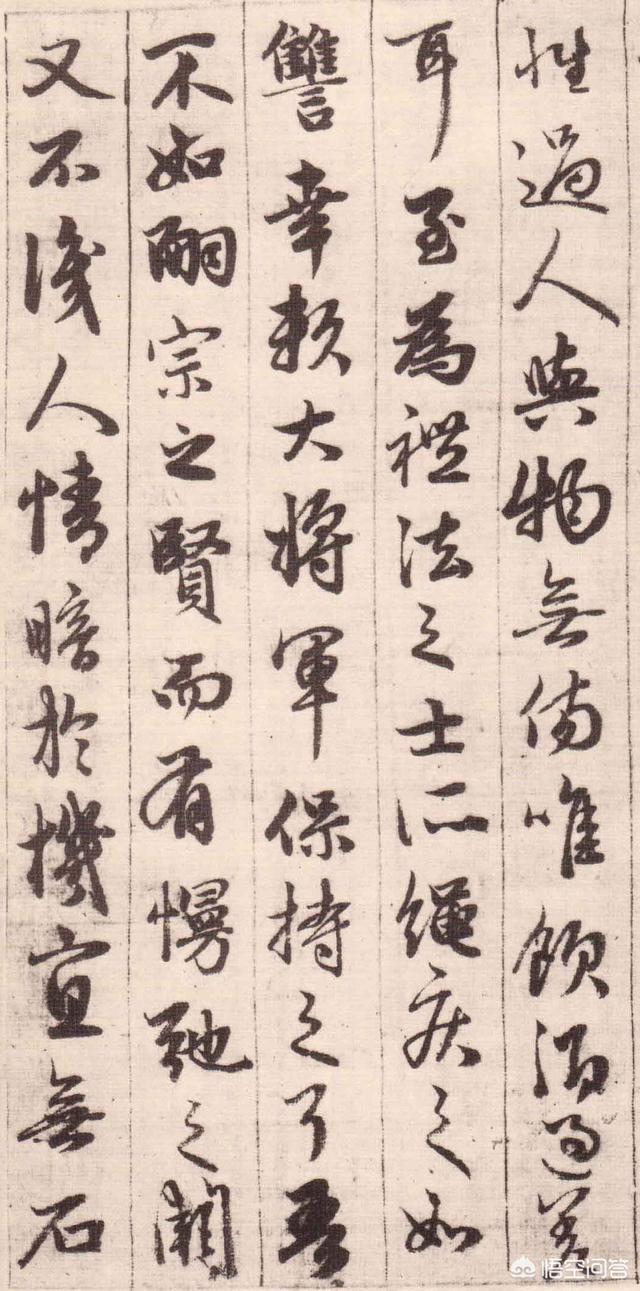 性過人與物無傷唯飲酒過差
耳至為禮法之士所繩疾之如
讐幸賴大將軍保持之耳吾
不如嗣宗之賢而有慢弛之闕
又不識人情暗於機宜無石
悟空问答